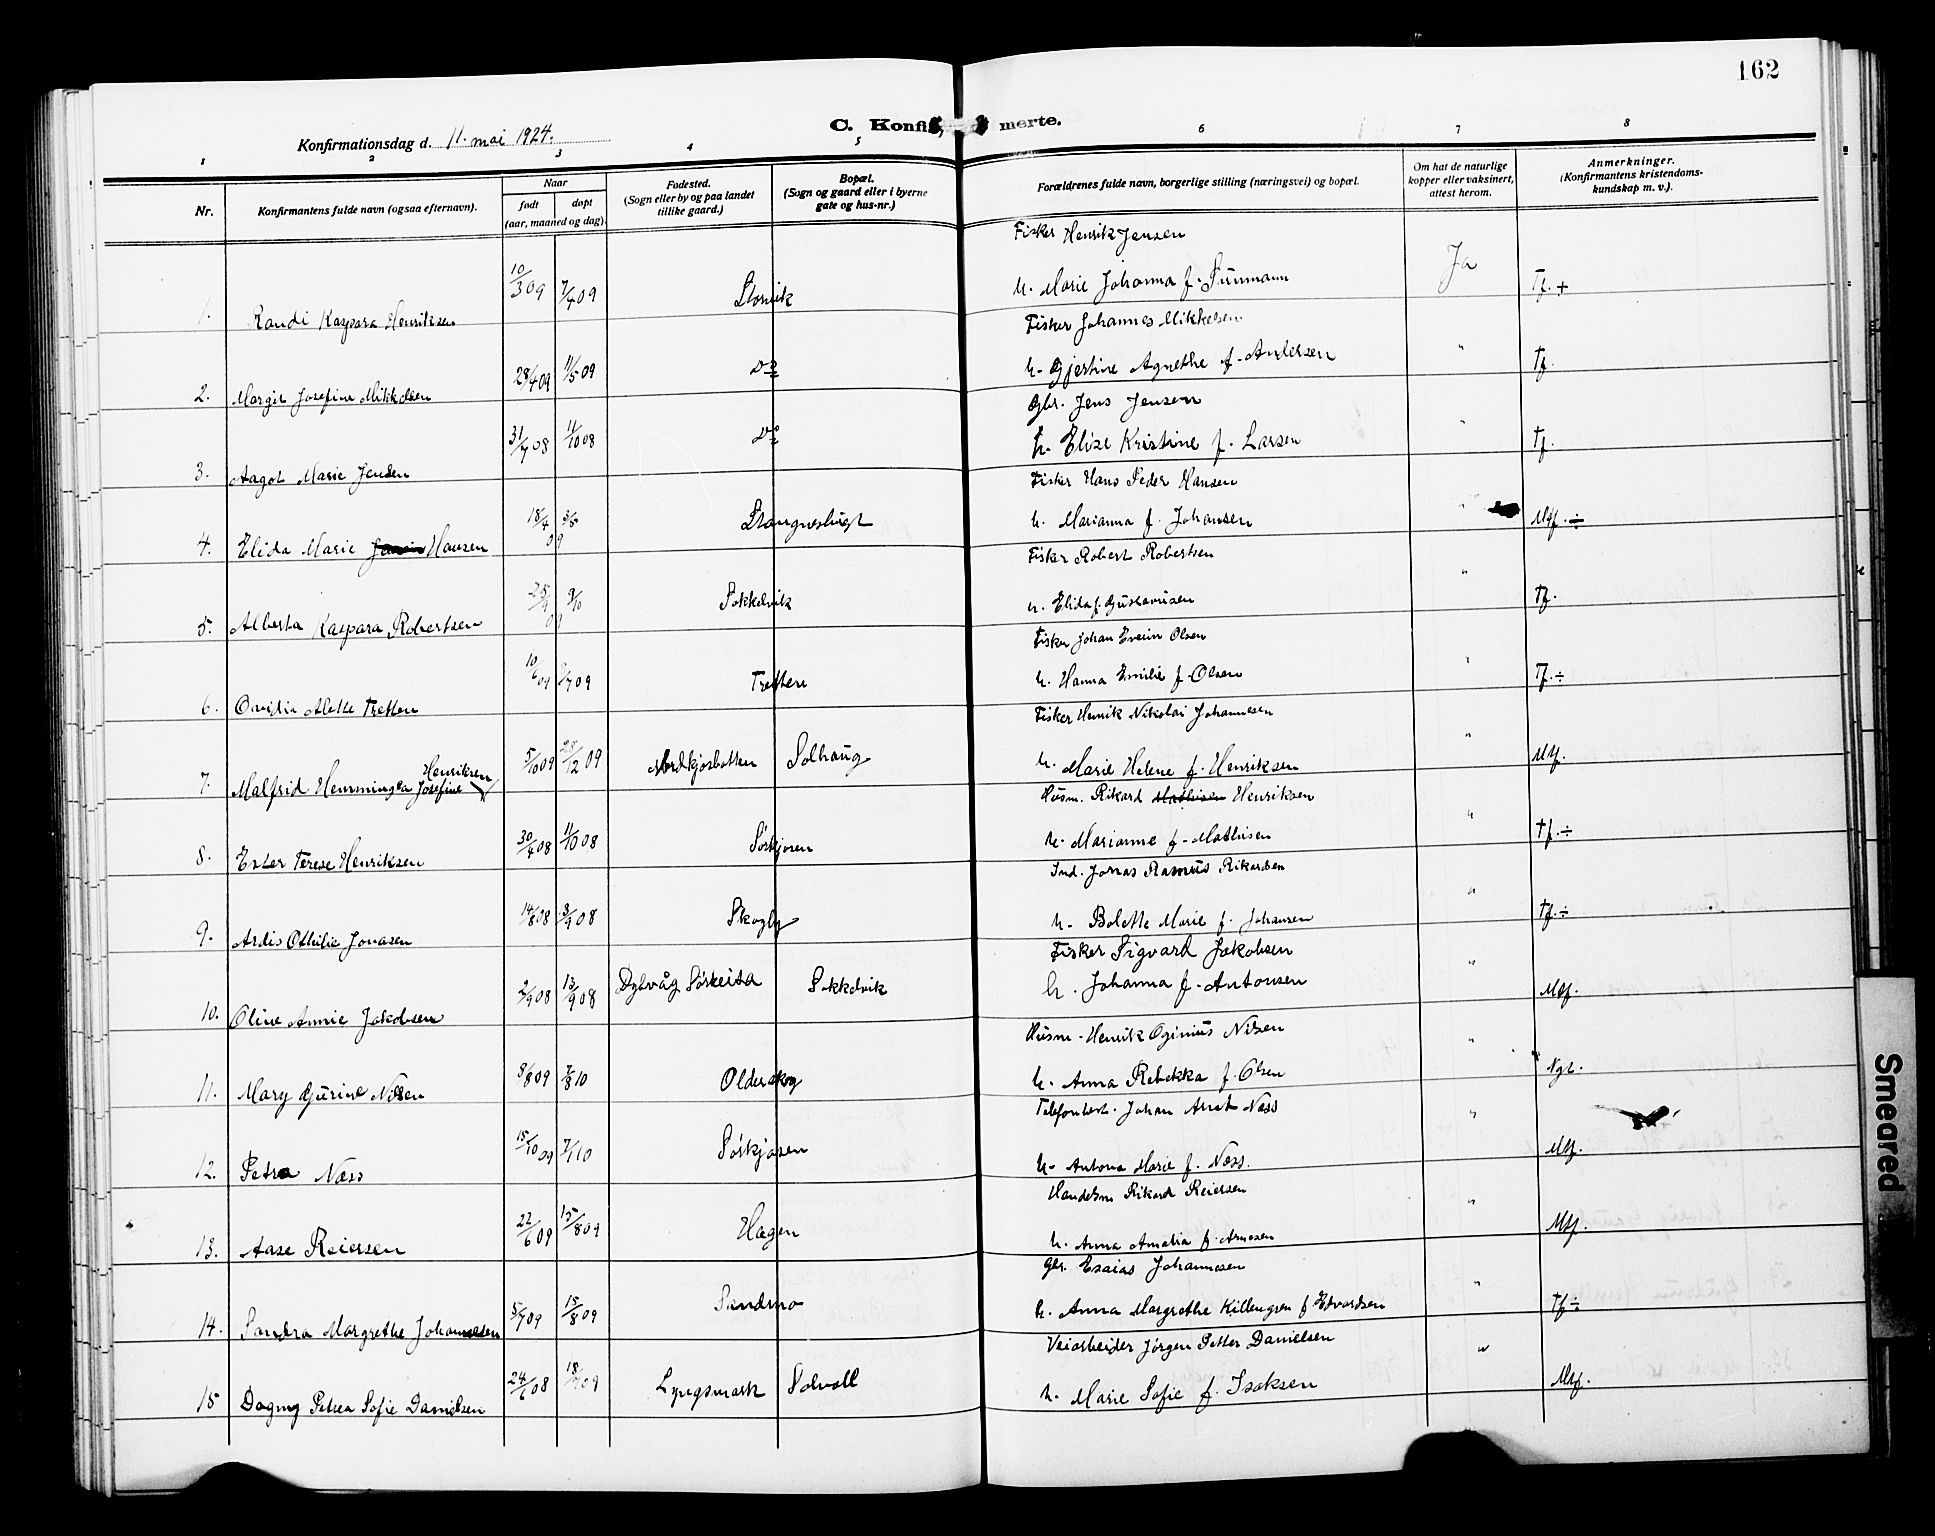 162
C. Konfirmerte.
Konfirmationsdag d. 11. mai 1924.
1 2 3 4 5 6 7 8
Nr. Konfirmantens fulde navn (ogsaa efternavn). Naar født døpt (aar, maaned og dag). Fødested. (Sogn eller by og paa landet tillike gaard.) Bopæl. (Sogn og gaard eller i byerne gate og hus-nr.) Forældrenes fulde navn, borgerlige stilling (næringsvei) og bopæl. Om hat de naturlige kopper eller vaksinert, attest herom. Anmerkninger. (Konfirmantens kristendomskundskap m. v.).
Fisker Henrik Jensen
1. Randi Kaspara Henriksen 10/3 09 7/4 09 Storvik h. Marie Johanna f. Sunmann Ja Tf. +
Fisker Johannes Mikkelsen
2. Margit Josefine Mikkelsen 28/4 09 11/5 09 Do h. Gjertine Agnethe f. Andersen " Tf.
Gbr. Jens Jensen
3. Aagot Marie Jensen 31/7 08 11/10 08 Do h. Elise Kristine f. Larsen " Tf.
Fisker Hans Peder Hansen
4. Elida Marie Hansen 18/4 09 3/5 Stangnesbugt h. Marianna f. Johansen " Mtf. ÷
Fisker Robert Robertsen
5. Alberta Kaspara Robertsen 25/9 09 9/10 Sokkelvik h. Elida f. Gustavusen " Tf.
Fisker Johan Enevin Olsen
6. Ovidia Alette Tretten 10/6 09 /7 09 Tretten h. Hanna Emilie f. Olsen " Tf. ÷
Fisker Henrik Nikolai Johannesen
7. Malfrid Hemmingea Josefine Henriksen 5/10 09 28/12 09 Nordkjosbotten Solhaug h. Marie Helene f. Henriksen " Mtf.
Husm. Rikard Mathisen Henriksen
8. Ester Terese Henriksen 30/4 08 11/10 08 Sørkjosen h. Marianne f. Mathisen " Tf. ÷
Ind. Jonas Rasmus Rikardsen
9. Ardis Othilie Jonasen 14/8 08 3/9 08 Skogly h. Bolette Marie f. Johansen " Tf. ÷
Fisker Sigvard Jakobsen
10. Oline Annie Jakobsen 2/9 08 13/9 08 Dybvåg Sørreisa Sokkelvik h. Johanna f. Antonsen " Mtf.
Husm. Henrik Oginius Nilsen
11. Mary Gjurine Nilsen 8/8 09 7/8 10 Olderskog h. Anna Rebekka f. Olsen " Ngt.
Telefonbest. Johan Arnt Næss
12. Petra Næss 15/10 09 7/1 10 Sørkjosen h. Antona Marie f. Næss. " Mtf.
Handelsm Rikard Reiersen
13. Aase Reiersen 22/6 09 15/8 09 Hagen h. Anna Amalia f. Arnesen " Mtf.
Gbr. Esaias Johannesen
14. Sandra Margrethe Johannesen 5/7 09 15/8 09 Sandmo h. Anna Margrethe Killengren f Edvardsen " Tf ÷
Veiarbeider Jørgen Petter Danielsen
15 Dagny Petrea Sofie Danielsen 24/6 08 Lyngsmark Solvoll h. Marie Sofie f. Isaksen " Mtf.
Smeared